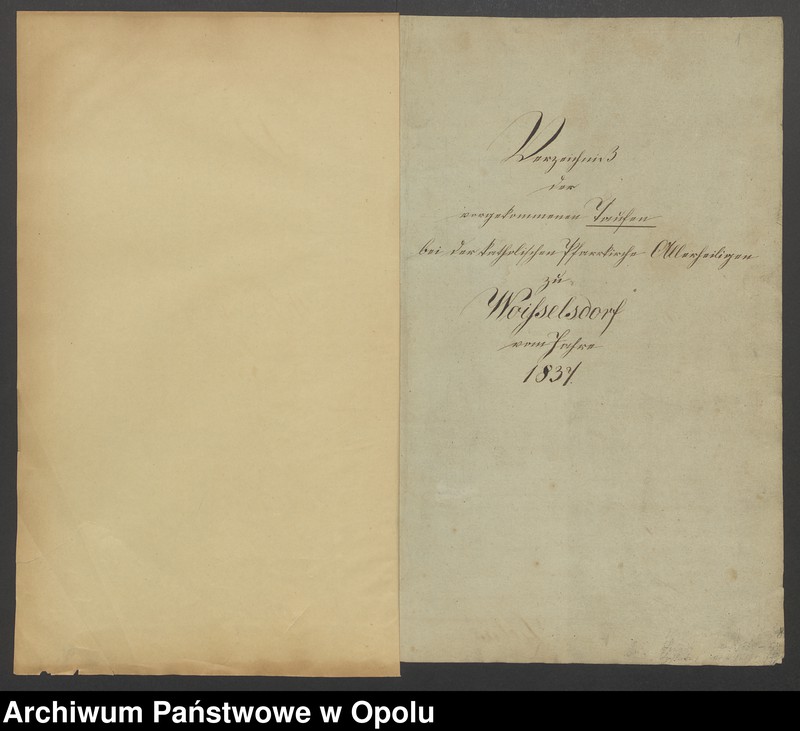 Verzeichniß
der
vorgekommenen Taufen
bei der katholischen Pfarrkirche Allerheiligen
zu
Woisselsdorf
vom Jahre
1837.
Archiwum Państwowe w Opolu